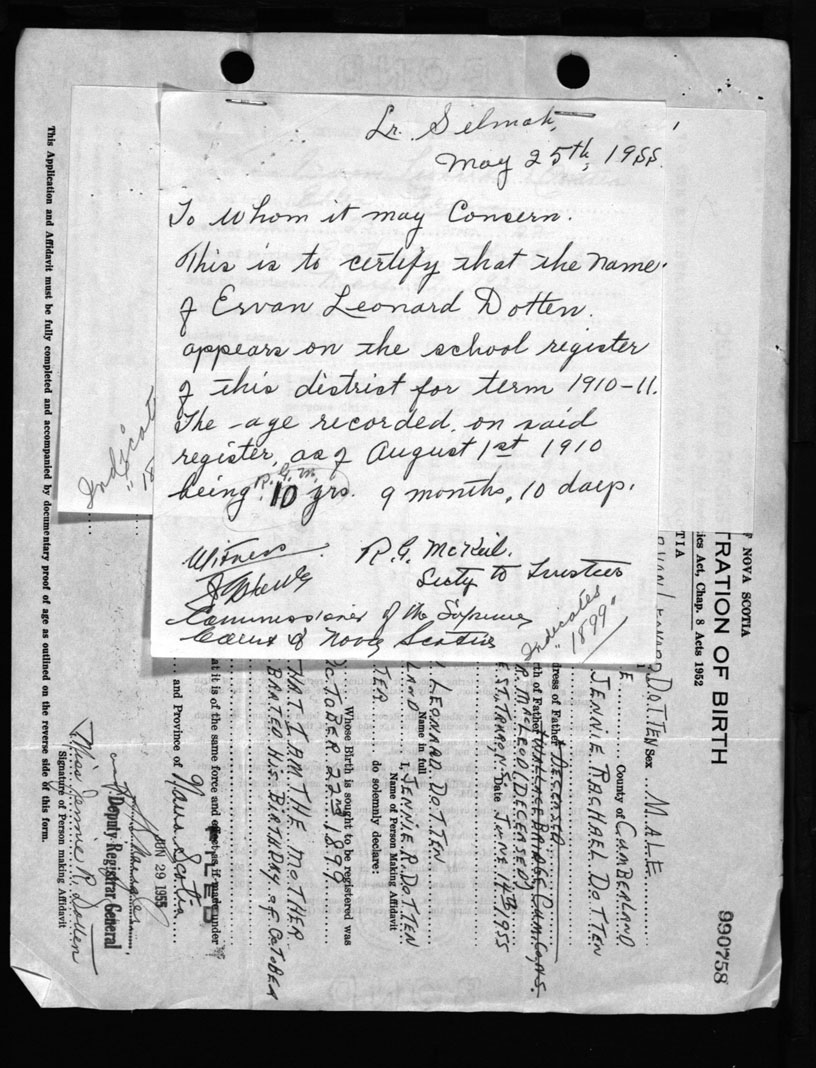 Lr. Selmah,
May 25th, 1955.
To Whom it may Concern.
This is to certify that the name
of Ervan Leonard Dotten.
appears on the school register
of this district for term 1910-11.
The age recorded, on said
register, as of August 1st 1910
R. G. M.
being 10 yrs. 9 months, 10 days.
Witness
R. G. McNeil.
Secty to Trustees
Commissioner of the Supreme
Court of Nova Scotia
"Indicates
1899"
Indicat
"18
This Application and Affidavit must be fully completed and accompanied by documentary proof of age as outlined on the reverse side of this form.
NOVA SCOTIA
TRATION OF BIRTH
ics Act, Chap. 8 Acts 1952
990758
TIA
LEONARD DOTTEN Sex MALE
E County of CUMBERLAND
JENNIE RACHAEL DOTTEN
dress of Father DECEASED
rth of Father WALLACE BRIDGE CUM. CO. N.S.
R. MCLEOD (DECEASED)
EST, TRURO N.S. Date JUNE 14TH 1955
LEONARD DOTTEN
Name in full
LAND I, JENNIE R. DOTTEN
Name of Person Making Affidavit
TER do solemnly declare:
Whose Birth is sought to be registered was
OCTOBER 22ND 1899
THAT I AM THE MOTHER
BRATED HIS BIRTHDAY OF OCTOBER
at it is of the same force and effect as if made under
FILED
and Province of Nova Scotia
JUN 29 1955
Deputy Registrar General
Miss Jennie R. Dotten
Signature of Person making Affidavit